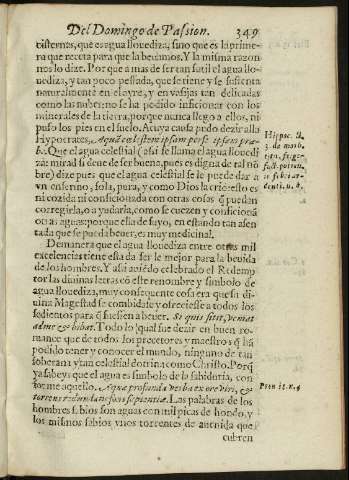 Del Domingo de Passion. 349
cisternas, que es agua llouediza, sino que es la prime-
ra que receta para que la beuamos. Y la misma razon
nos lo dize. Porque a mas de ser tan sutil el agua llo-
uediza, y tan poco pessada, que se tiene y se sustenta
naturalmente en el ayre, y en vasijas tan delicadas
como las nubes: no se ha podido inficionar con los
minerales de la tierra, porque nunca llego a ellos, ni
puso los pies en el suelo. A cuya causa pudo dezir alla
Hypocrates,
Que el agua celestial (assi se llama el agua llouedi
za: mirad si deue de ser buena, pues es digna de tal nõ
bre) dize pues que el agua celestial se le puede dar a
vn enfermo, sola, pura, y como Dios la crió: esto es
ni cozida ni conficionada con otras cosas q̃ puedan
corregirla, o ayudarla, como se cuezen y conficionã
otras aguas: porque ella de suyo, en estando tan assen
tada que se pueda beuer, es muy medicinal.
De manera que el agua llouediza entre otras mil
excelencias tiene essa de ser le mejor para la beuida
de los hombres. Y assi auiẽdo celebrado el Redemp
tor las diuinas letras cõ este renombre y simbolo de
agua llouediza, muy consequente cosa era que su di-
uina Magestad se combidasse y ofreciesse a todos los
sedientos para q̃ fuessen a beuer. Si quis sitit, veniat
ad me & bibat. Todo lo qual fue dezir en buen ro-
mance que de todos los precetores y maestros q̃ ha
podido tener y conocer el mundo, ninguno de tan
soberana y tan celestial dotrina como Christo. Porq̃
ya sabeys que el agua es simbolo de la sabiduria, con-
forme aquello. Aqua profunda verba ex ore viri, &
torrens redundans fons sapientiæ. Las palabras de los
hombres sabios son aguas con mil picas de hondo, y
los mismos sabios vnos torrentes de auenida que
cubren
Hippoc. li.
3. de morb.
Prou. 18. n. 4